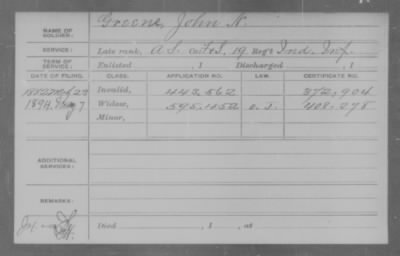 NAME OF SOLDIER: Greene, John N.
SERVICE: Late rank, A.S. Co. F&S, 19 Reg't Ind. Inf.
TERM OF SERVICE: Enlisted , 1 Discharged , 1
DATE OF FILING. CLASS. APPLICATION NO. LAW. CERTIFICATE NO.
1882 23 Invalid, 443.562 372.904
1894 7 Widow, 595.452 408.278
Minor,
ADDITIONAL SERVICES:
REMARKS:
Died , 1 , at